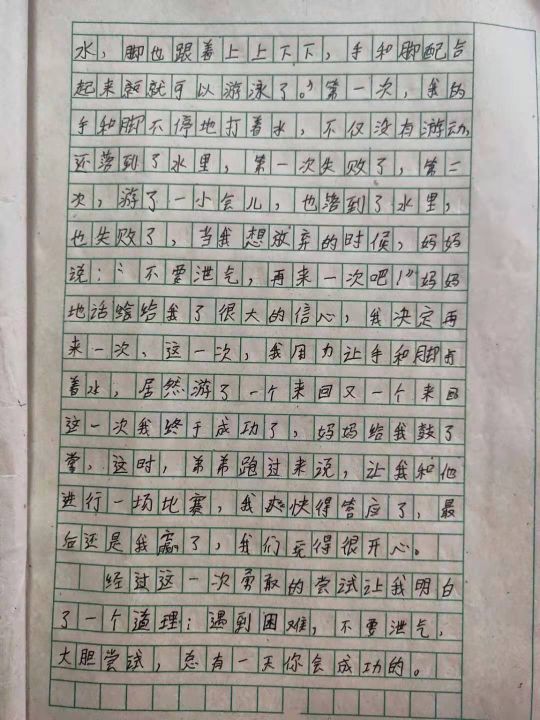 水，脚也跟着上上下下，手和脚配合
起来就可以游泳了。”第一次，我的
手和脚不停地打着水，不仅没有游动，
还落到了水里，第一次失败了，第二
次，游了一小会儿，也落到了水里，
也失败了，当我想放弃的时候，妈妈
说：“不要泄气，再来一次吧！”妈妈
地话给给我了很大的信心，我决定再
来一次、这一次，我用力让手和脚打
着水，居然游了一个来回又一个来回
这一次我终于成功了，妈妈给我鼓了
掌，这时，弟弟跑过来说，让我和他
进行一场比赛，我爽快得答应了，最
后还是我赢了，我们玩得很开心。
经过这一次勇敢的尝试让我明白
了一个道理：遇到困难，不要泄气，
大胆尝试，总有一天你会成功的。